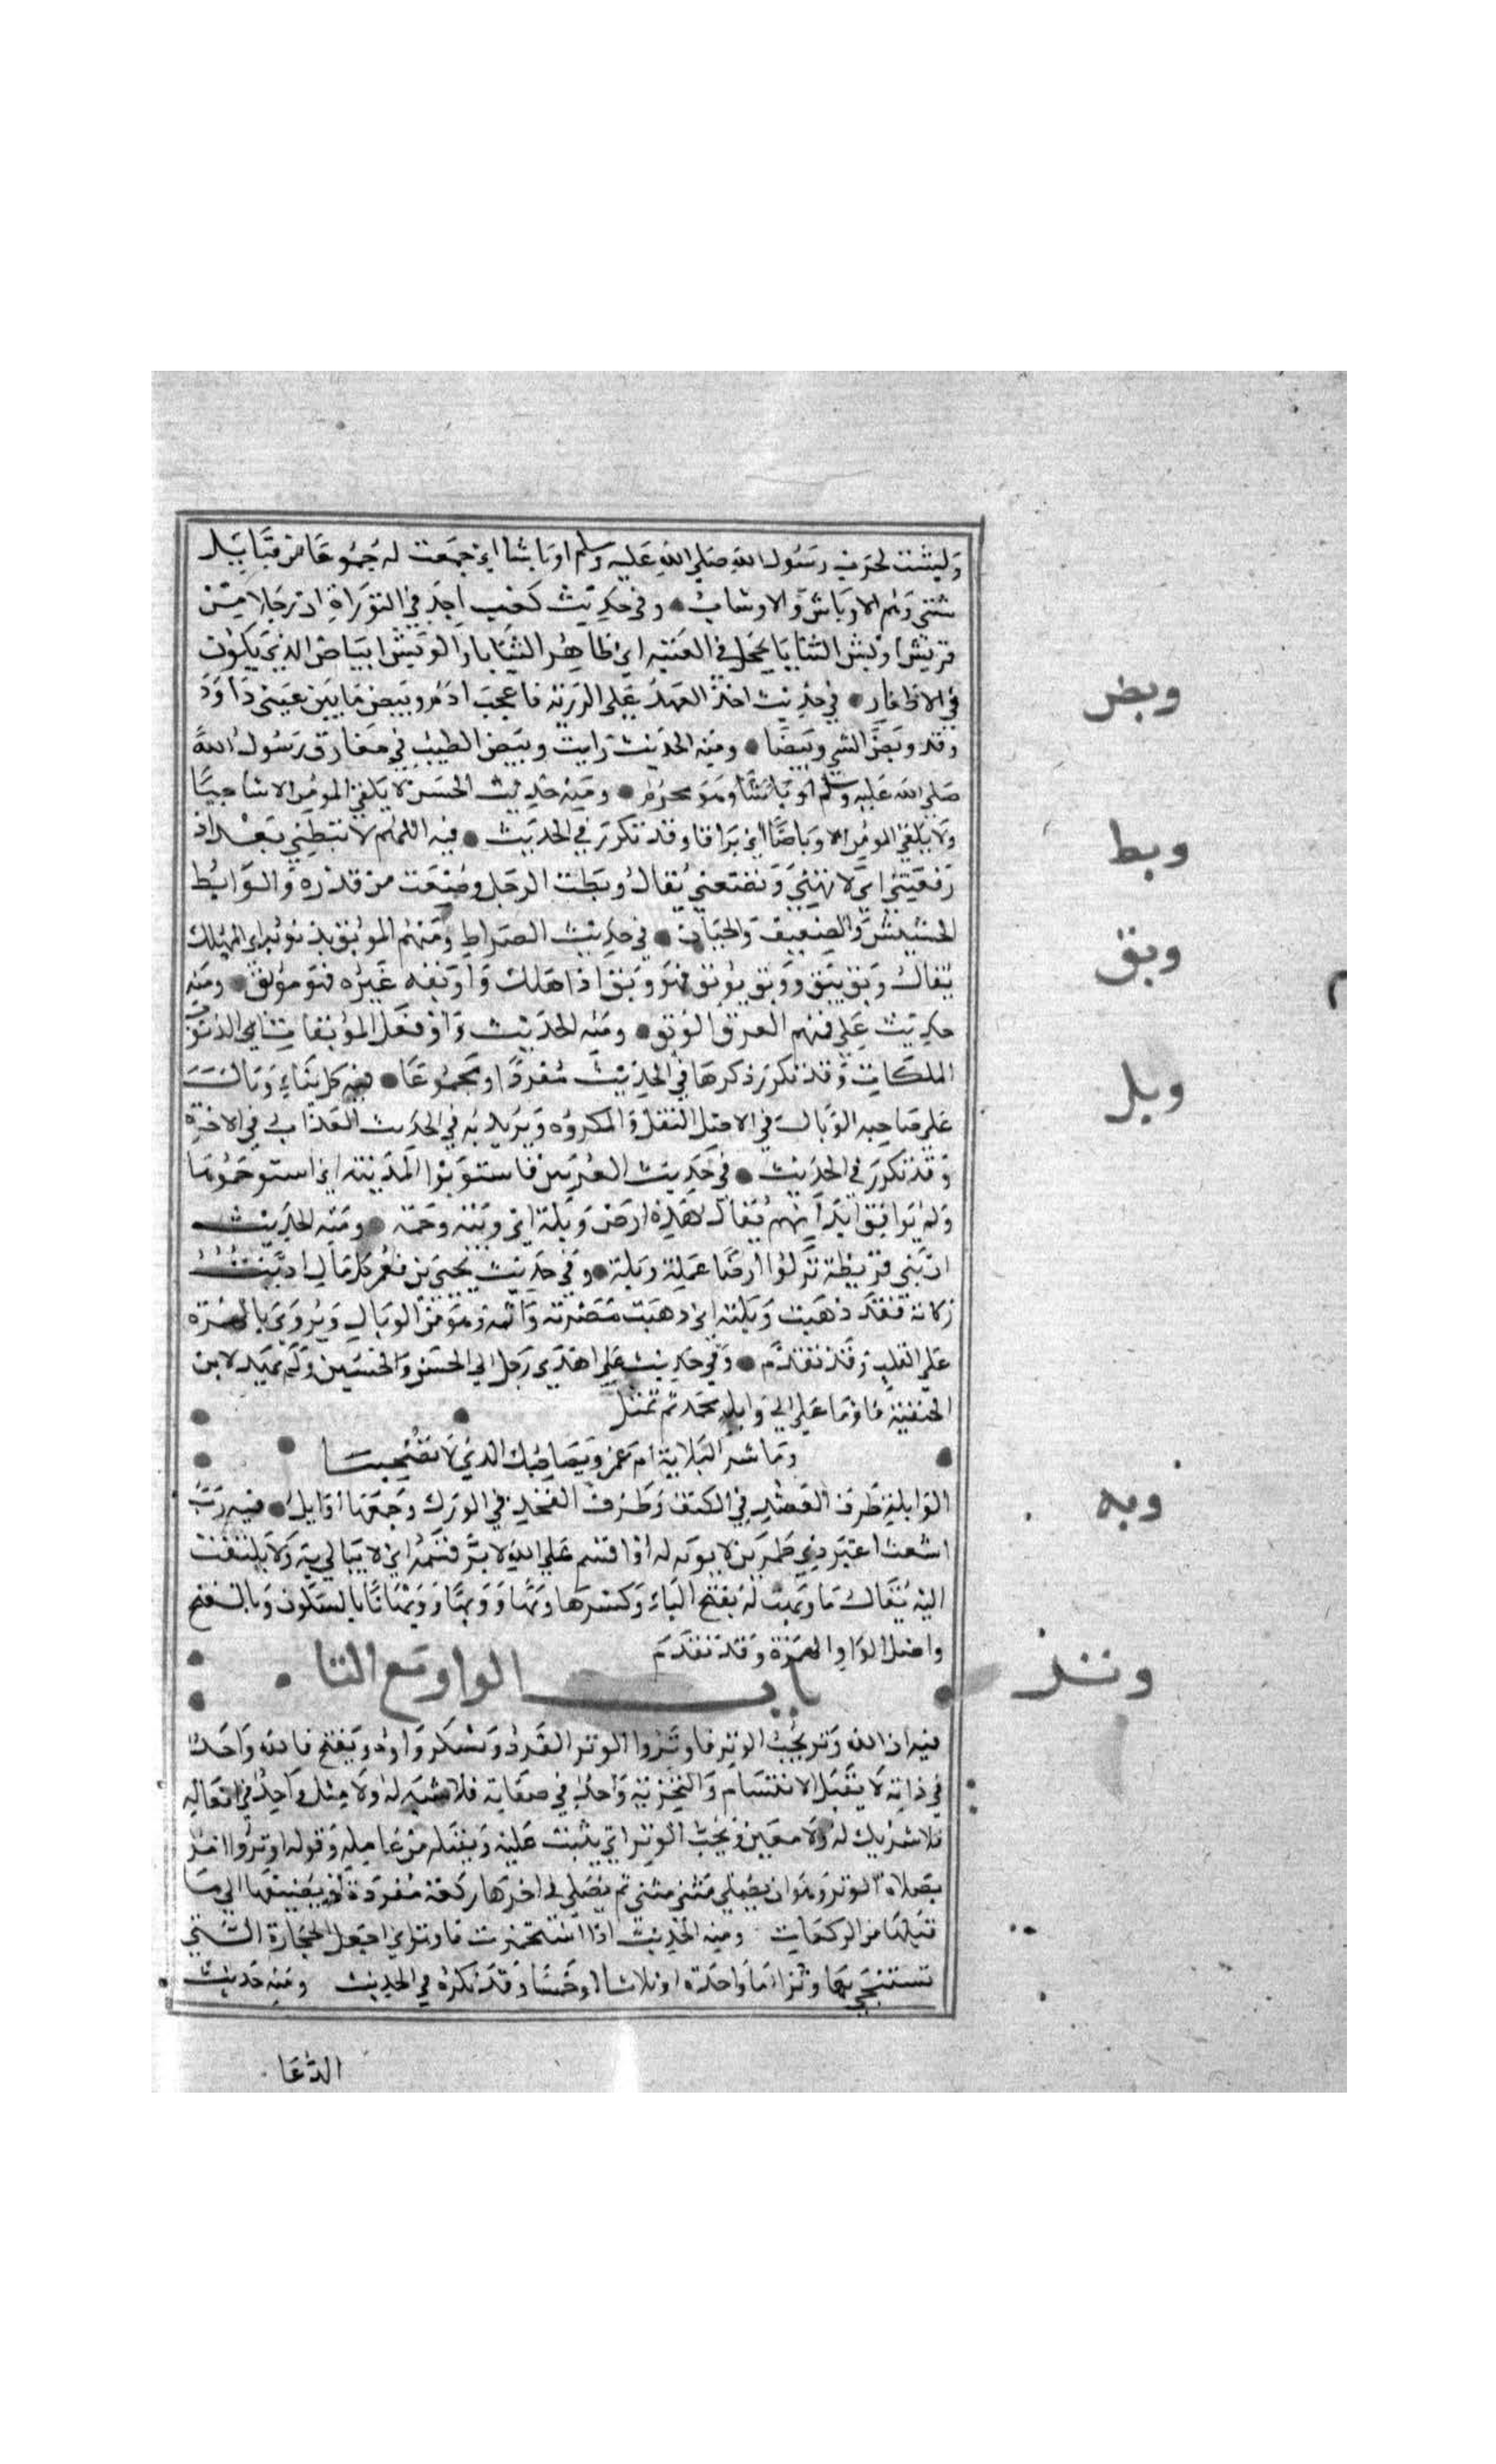 وبشت لحرب رسول الله صلى الله عليه وسلم اوباشا اي جمعت له جموعا من قبايل
شتى وهم الاوباش والاوشاب • وفي حديث كعب اجد في التوراة ان رجلا من
قريش اوبش الثنايا يحجل في الفتنة اي ظاهر الثنايا والوبش البياض الذي يكون
في الاظفار • في حديث اخذ العهد على الذرية فاعجب ادم وبيص ما بين عيني داود
وقد وبص الشي وبيصا • ومنه الحديث رايت وبيص الطيب في مفارق رسول الله
صلى الله عليه وسلم وهو محرم • ومنه حديث الحسن لا يلقى المومن الا شاحبا
ولا يلقى المومن الا وباصا اي براقا وقد تكرر في الحديث • فيه اللهم لا تبطني بعد اذ
رفعتني اي لا تهني وتضعني يقال وبطت الرجل وضعت من قدره والوابط
الخسيس والضعيف والجبان • في حديث الصراط ومنهم الموبق بذنوبه اي المهلك
يقال وبق يبق ووبق يوبق فهو وبق اذا هلك واوبقه غيره فهو موبق • ومنه
حديث علي فمنهم الغرق الوبق • ومنه الحديث ولو فعل الموبقات اي الذنوب
المهلكات وقد تكرر ذكرها في الحديث مفردا ومجموعا • فيه كل بناء وبال
على صاحبه الوبال في الاصل الثقل والمكروه ويريد به في الحديث العذاب في الاخرة
وقد تكرر في الحديث • في حديث العرنيين فاستوبلوا المدينة اي استوخموها
ولم توافق ابدانهم يقال هذه ارض وبلة اي وبئة وخمة • ومنه الحديث
ان بني قريظة نزلوا ارضا غملة وبلة • وفي حديث يحيى بن يعمر كل مال اديت
زكاته فقد ذهبت وبلته اي ذهبت مضرته واثمه وهو من الوبال ويروى بالهمزة
على القلب وقد تقدم • وفي حديث علي اهدى رجل الى الحسن والحسين ولم يهد لابن
الحنفية فاوما علي الى وابلة محمد ثم تمثل
وما شر الثلاثة ام عمرو بصاحبك الذي لا تصبحينا
الوابلة طرف العضد في الكتف وطرف الفخذ في الورك وجمعها اوابل • فيه رب
اشعث اغبر ذي طمرين لا يوبه له لو اقسم على الله لابر قسمه اي لا يبالي به ولا يلتفت
اليه يقال ما وبهت له بفتح الباء وكسرها وبها ووبها بالسكون وبالفتح
واصل الواو الهمزة وقد تقدم
باب الواو مع التا
فيه ان الله وتر يحب الوتر فاوتروا الوتر الفرد وتكسر واوه وتفتح فالله واحد
في ذاته لا يقبل الانقسام والتجزية واحد في صفاته فلا شبه له ولا مثل واحد في افعاله
فلا شريك له ولا معين ويحب الوتر اي يثيب عليه ويقبله من عامله وقوله اوتروا امر
بصلاة الوتر وهو ان يصلي مثنى مثنى ثم يصلي في اخرها ركعة مفردة او يضيفها الى ما
قبلها من الركعات ومنه الحديث اذا استجمرت فاوتر اي اجعل الحجارة التي
تستنجي بها وترا اما واحدة او ثلاثا او خمسا وقد تكرر في الحديث ومنه حديث
الدعا
وبص
وبط
وبق
وبل
وبه
وتر